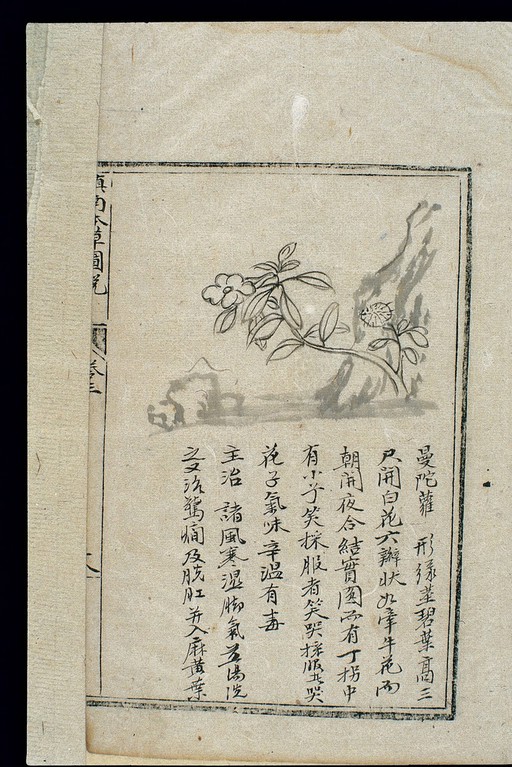 曼陀蘿 形綠莖碧葉高三
尺開白花六瓣狀如牽牛花而
朝開夜合結實圓而有丁拐中
有小子笑採服者笑哭採服者哭
花子氣味辛溫有毒
主治 諸風寒濕脚氣湯洗
之又治驚癇及脫肛并入麻黃葉
滇南本草圖說
卷三